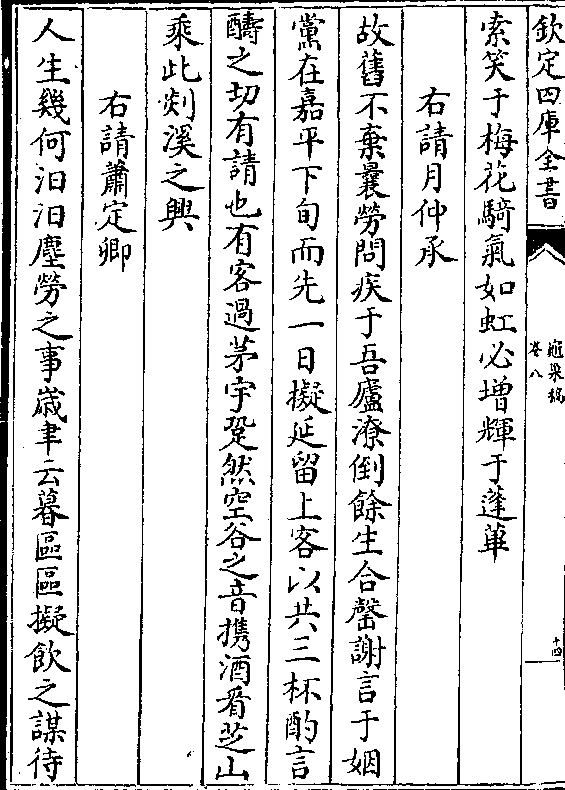 欽定四庫全書
龜巢稿
卷八
十四
索笑于梅花騎氣如虹必增輝于蓬蓽
右請月仲承
故舊不棄曩勞問疾于吾廬潦倒餘生合罄謝言于姻
黨在嘉平下旬而先一日擬延留上客以共三杯酌言
醻之切有請也有客過茅宇跫然空谷之音携酒看芝山
乘此剡溪之興
右請蕭定卿
人生幾何汩汩塵勞之事嵗聿云暮區區擬飲之謀待